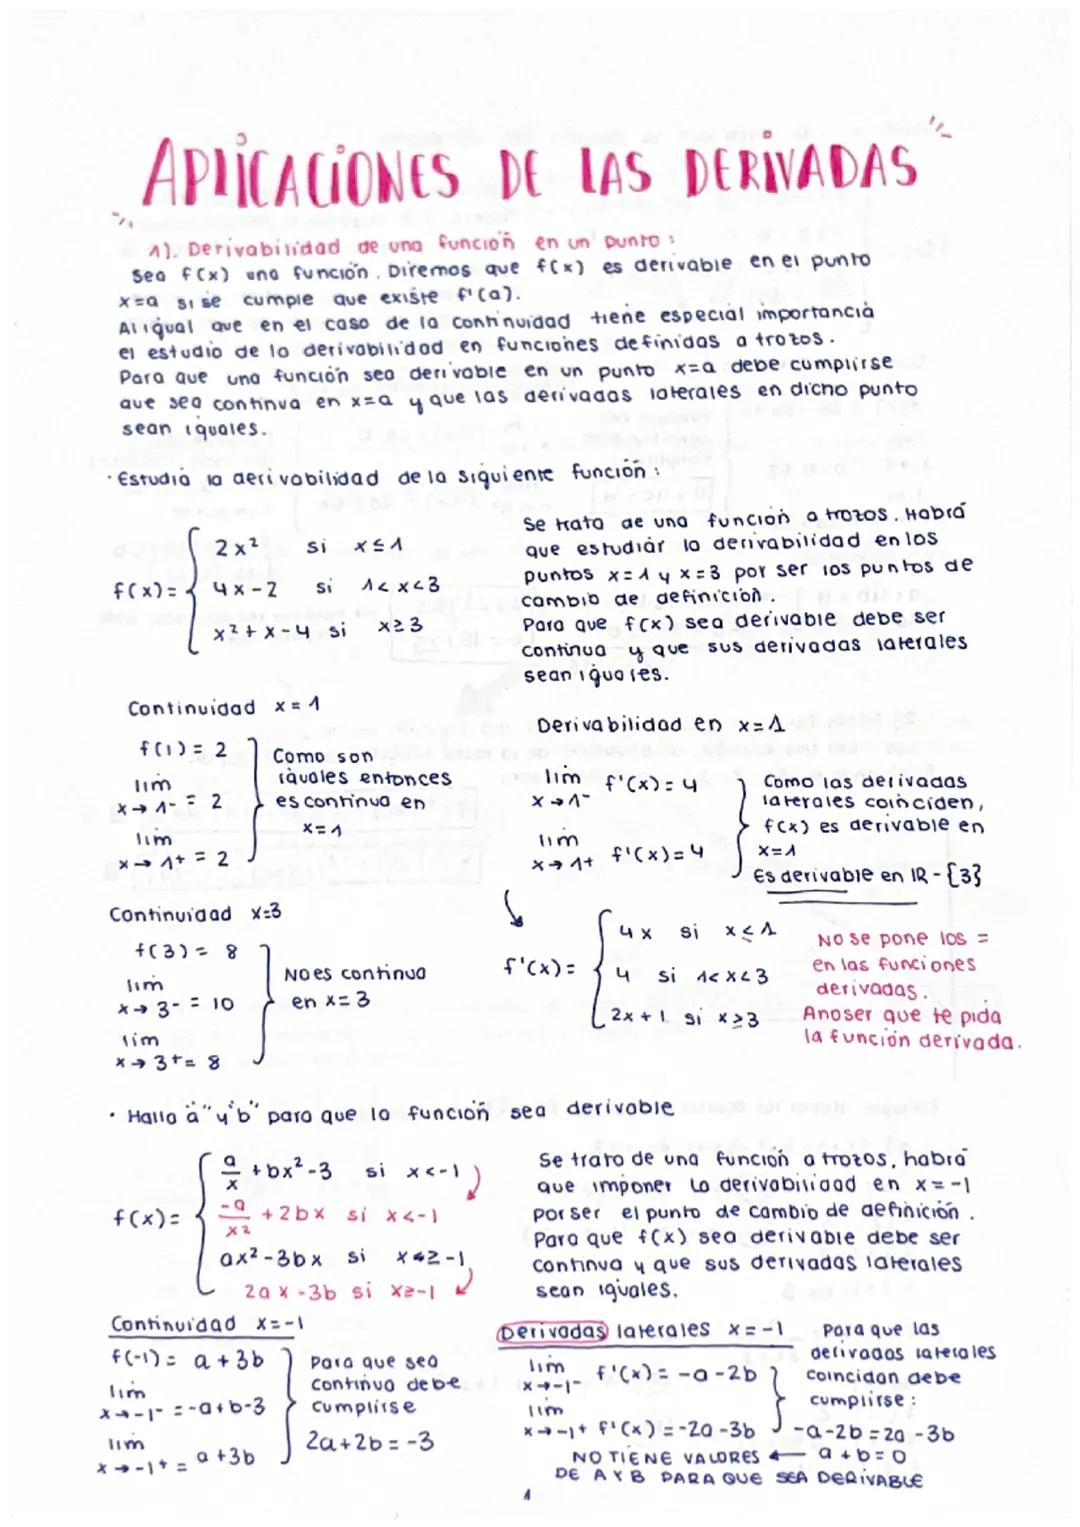 APLICACIONES DE LAS DERIVADAS
1). Derivabilidad de una función en un punto:
Sea f(x) una función. Diremos que f(x) es derivable en el punto
x=a si se cumple que existe f'(a).
Al igual que en el caso de la continuidad tiene especial importancia
el estudio de la derivabilidad en funciones definidas a trozos.
Para que una función sea derivable en un punto x=a debe cumplirse
que sea continua en x=a y que las derivadas laterales en dicho punto
sean iguales.
· Estudia la derivabilidad de la siguiente función:
f(x)= { 2x² si x≤1
4x-2 si 1<x<3
x²+x-4 si x≥3
Se trata de una función a trozos. Habrá
que estudiar la derivabilidad en los
puntos x=1 y x=3 por ser los puntos de
cambio de definición.
Para que f(x) sea derivable debe ser
continua y que sus derivadas laterales
sean iguales.
Continuidad x=1
f(1)=2
lim x→1⁻ = 2
lim x→1⁺ = 2
Como son
iguales entonces
es continua en
x=1
Derivabilidad en x=1
lim x→1⁻ f'(x)=4
lim x→1⁺ f'(x)=4
Como las derivadas
laterales coinciden,
f(x) es derivable en
x=1
Es derivable en IR-{3}
Continuidad x=3
f(3)= 8
lim x→3⁻ = 10
lim x→3⁺ = 8
No es continua
en x=3
f'(x)= { 4x si x≤1
4 si 1<x<3
2x+1 si x≥3
No se pone los =
en las funciones
derivadas.
Anoser que te pida
la función derivada.
· Halla "a" y "b" para que la función sea derivable
f(x)= { a/x +bx²-3 si x<-1
-a/x² +2bx si x<-1
ax²-3bx si x≥-1
2ax-3b si x≥-1
Se trata de una función a trozos, habrá
que imponer la derivabilidad en x=-1
por ser el punto de cambio de definición.
Para que f(x) sea derivable debe ser
continua y que sus derivadas laterales
sean iguales.
Continuidad x=-1
f(-1)= a+3b
lim x→-1⁻ = -a+b-3
lim x→-1⁺ = a+3b
Para que sea
continua debe
cumplirse
2a+2b=-3
Derivadas laterales x=-1
lim x→-1⁻ f'(x)= -a-2b
lim x→-1⁺ f'(x)=-2a-3b
Para que las
derivadas laterales
coincidan debe
cumplirse:
-a-2b=2a-3b
a+b=0
NO TIENE VALORES ←
DE A Y B PARA QUE SEA DERIVABLE
1